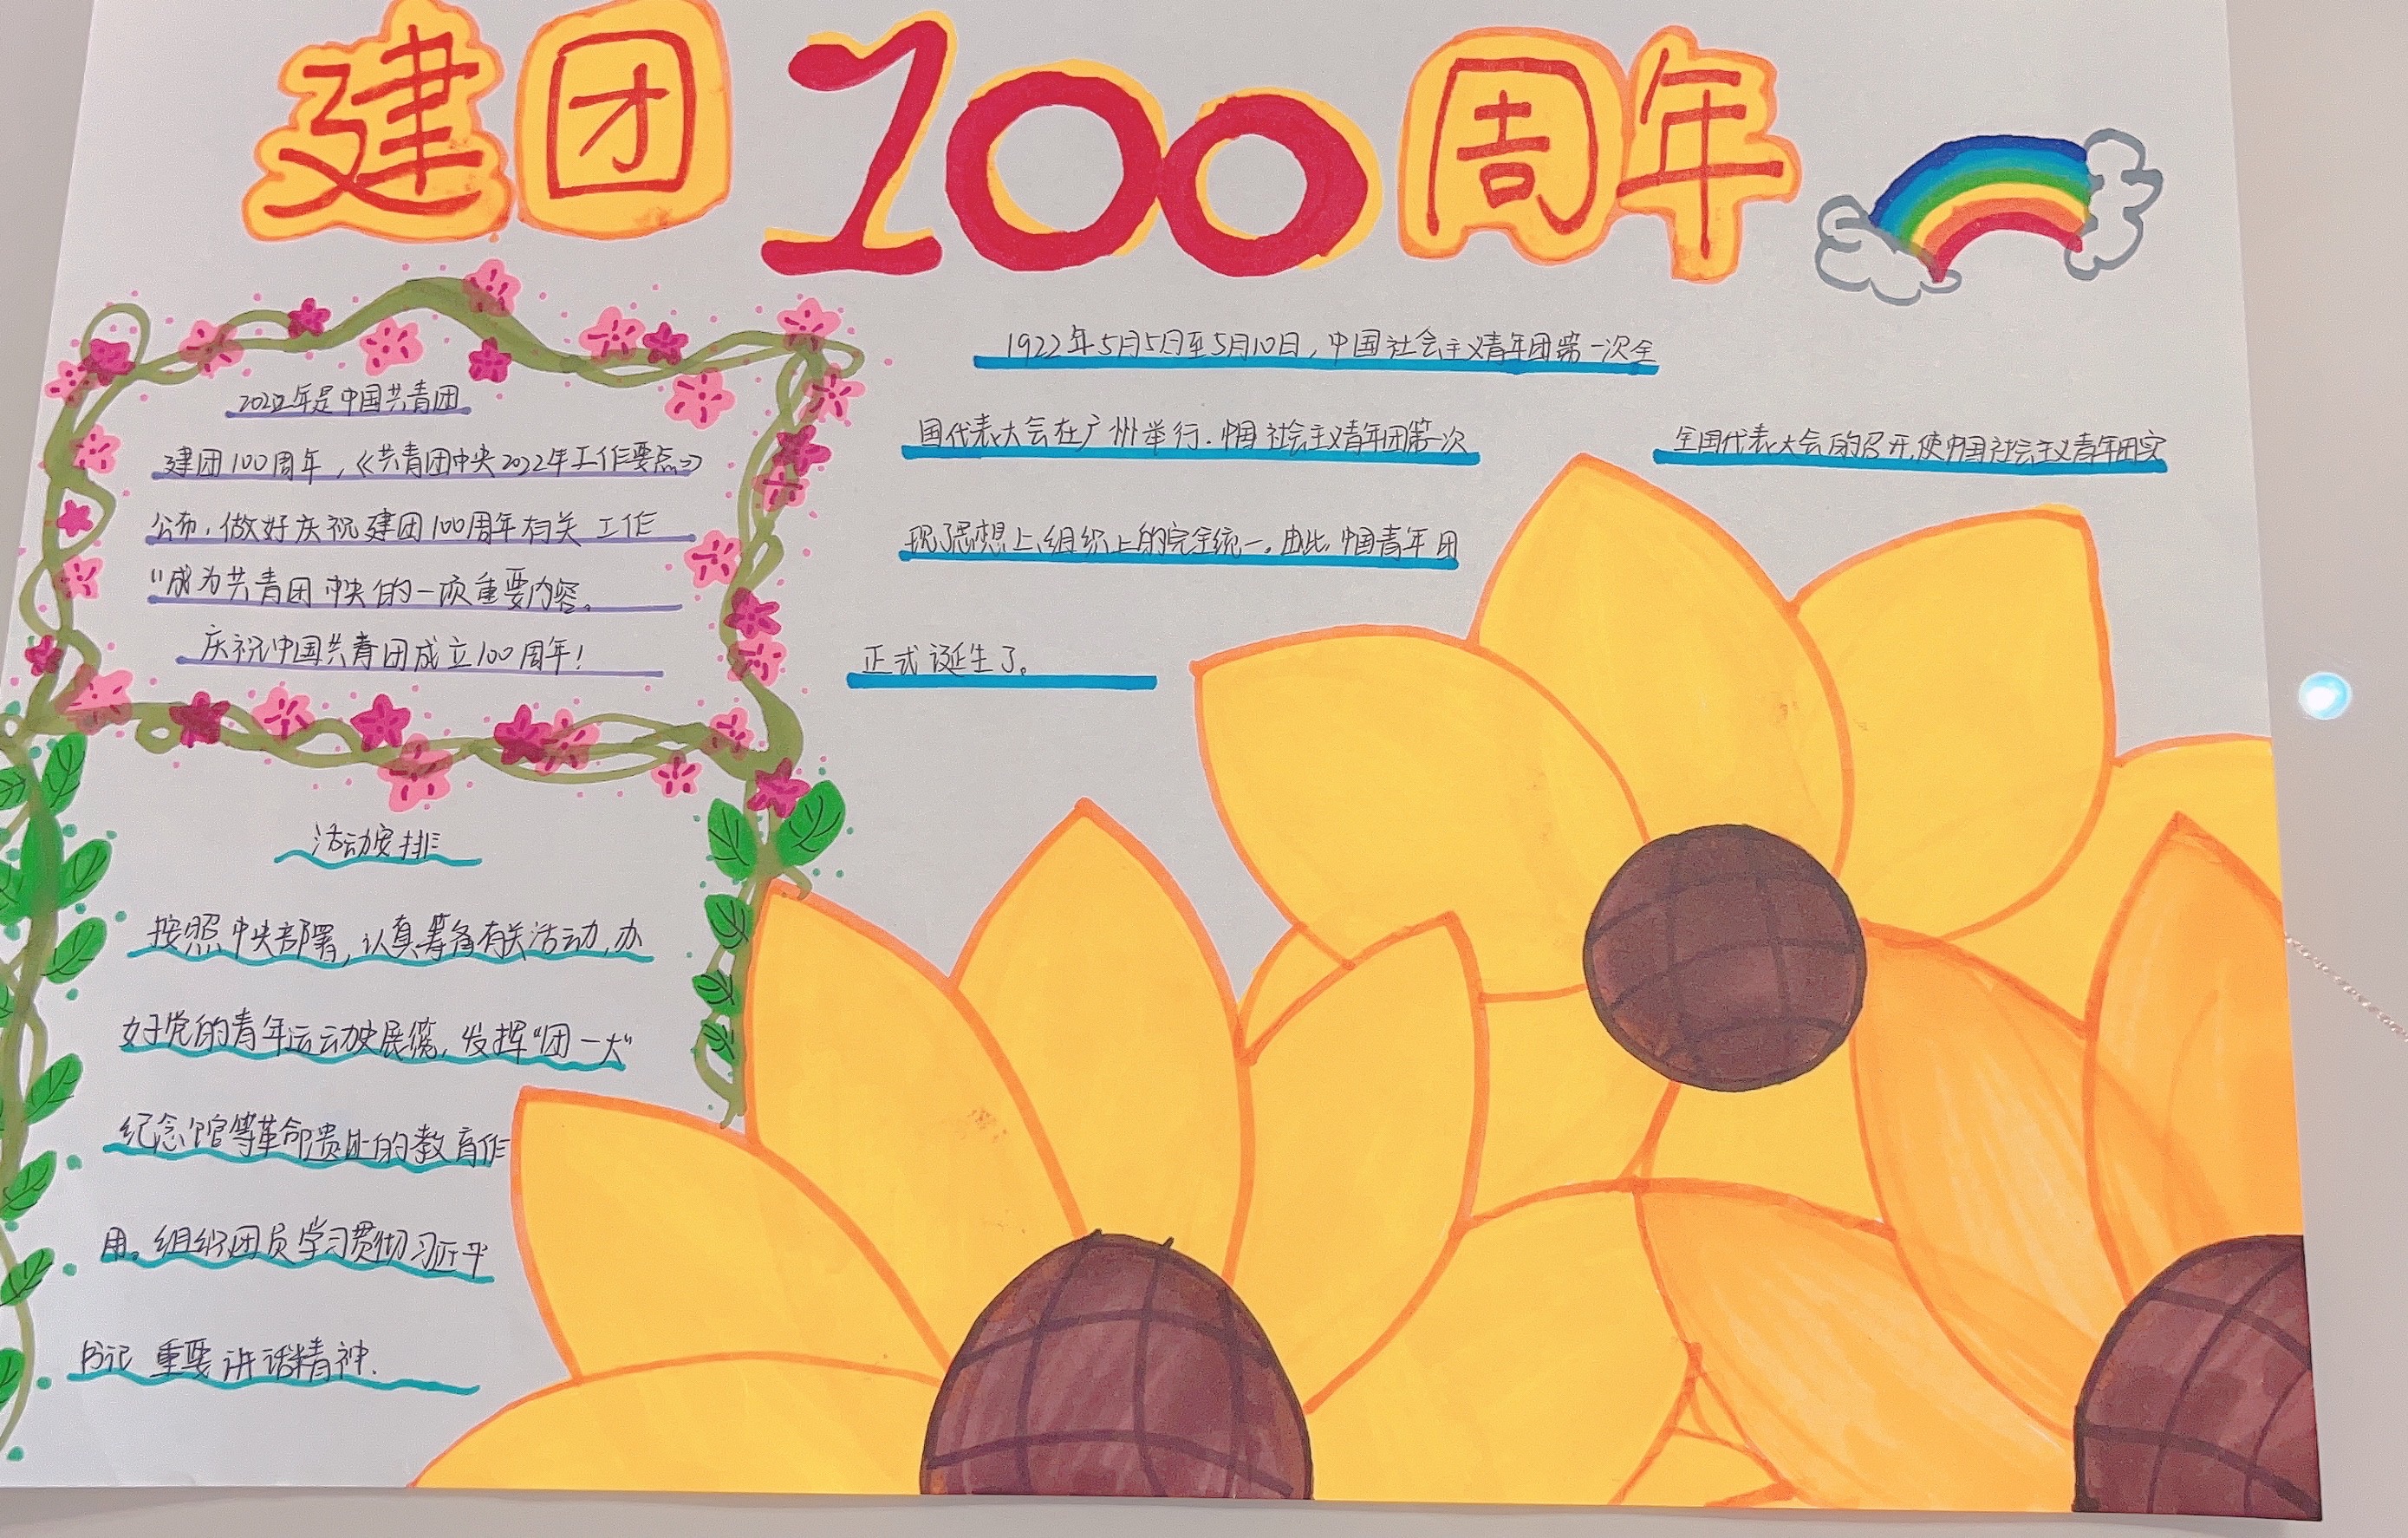 建团100周年
2022年是中国共青团
建团100周年，《共青团中央2022年工作要点》
公布，做好庆祝建团100周年有关工作
"成为共青团中央的一项重要内容。
庆祝中国共青团成立100周年！
1922年5月5日至5月10日，中国社会主义青年团第一次全
国代表大会在广州举行.中国社会主义青年团第一次
全国代表大会的召开,使中国社会主义青年团实
现了思想上、组织上的完全统一。由此,中国青年团
正式诞生了。
活动安排
按照中央部署,认真筹备有关活动,办
好党的青年运动史展览,发挥"团一大"
纪念馆等革命遗址的教育作
用。组织团员学习贯彻习近平
书记重要讲话精神.